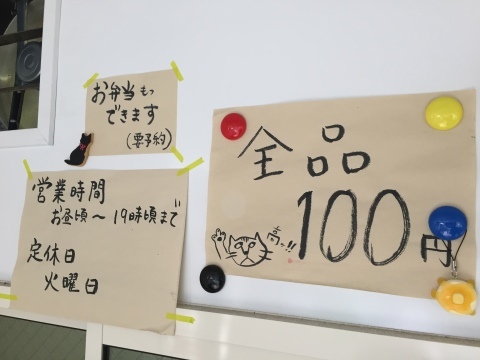 お弁当もっ
できます
(要予約)
営業時間
お昼頃〜19時頃まで
定休日
火曜日
全品
100円
高っ!!